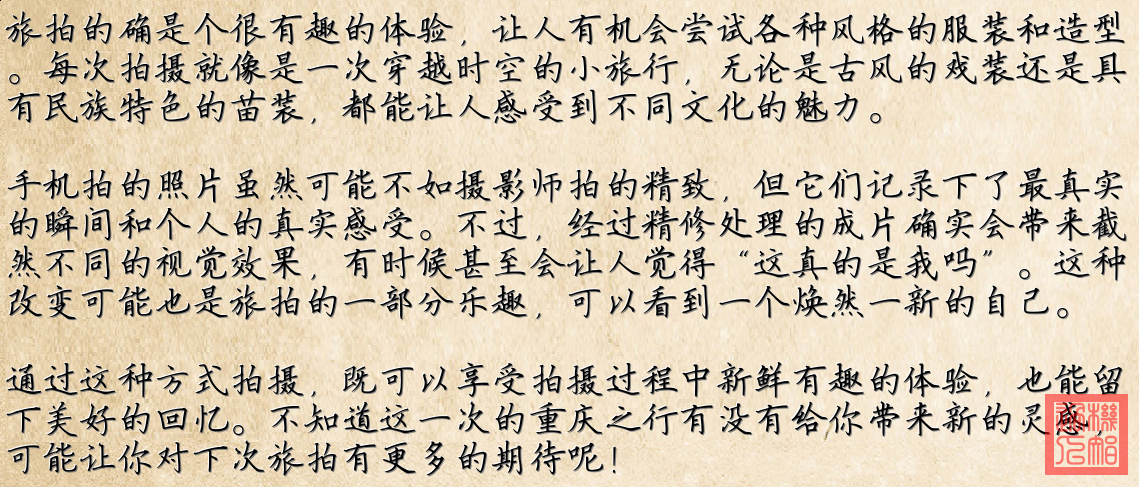 旅拍的确是个很有趣的体验，让人有机会尝试各种风格的服装和造型
。每次拍摄就像是一次穿越时空的小旅行，无论是古风的戏装还是具
有民族特色的苗装，都能让人感受到不同文化的魅力。
手机拍的照片虽然可能不如摄影师拍的精致，但它们记录下了最真实
的瞬间和个人的真实感受。不过，经过精修处理的成片确实会带来截
然不同的视觉效果，有时候甚至会让人觉得“这真的是我吗”。这种
改变可能也是旅拍的一部分乐趣，可以看到一个焕然一新的自己。
通过这种方式拍摄，既可以享受拍摄过程中新鲜有趣的体验，也能留
下美好的回忆。不知道这一次的重庆之行有没有给你带来新的灵感，
可能让你对下次旅拍有更多的期待呢！